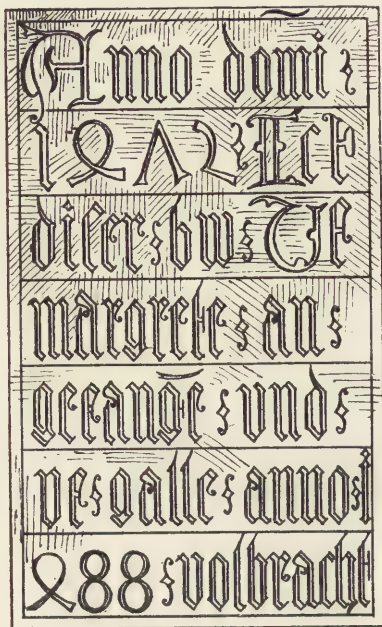 Anno domī
1472 Ist
diser bw Uf
margrete an
gefange vnd
vf galle anno 1
488 volbracht